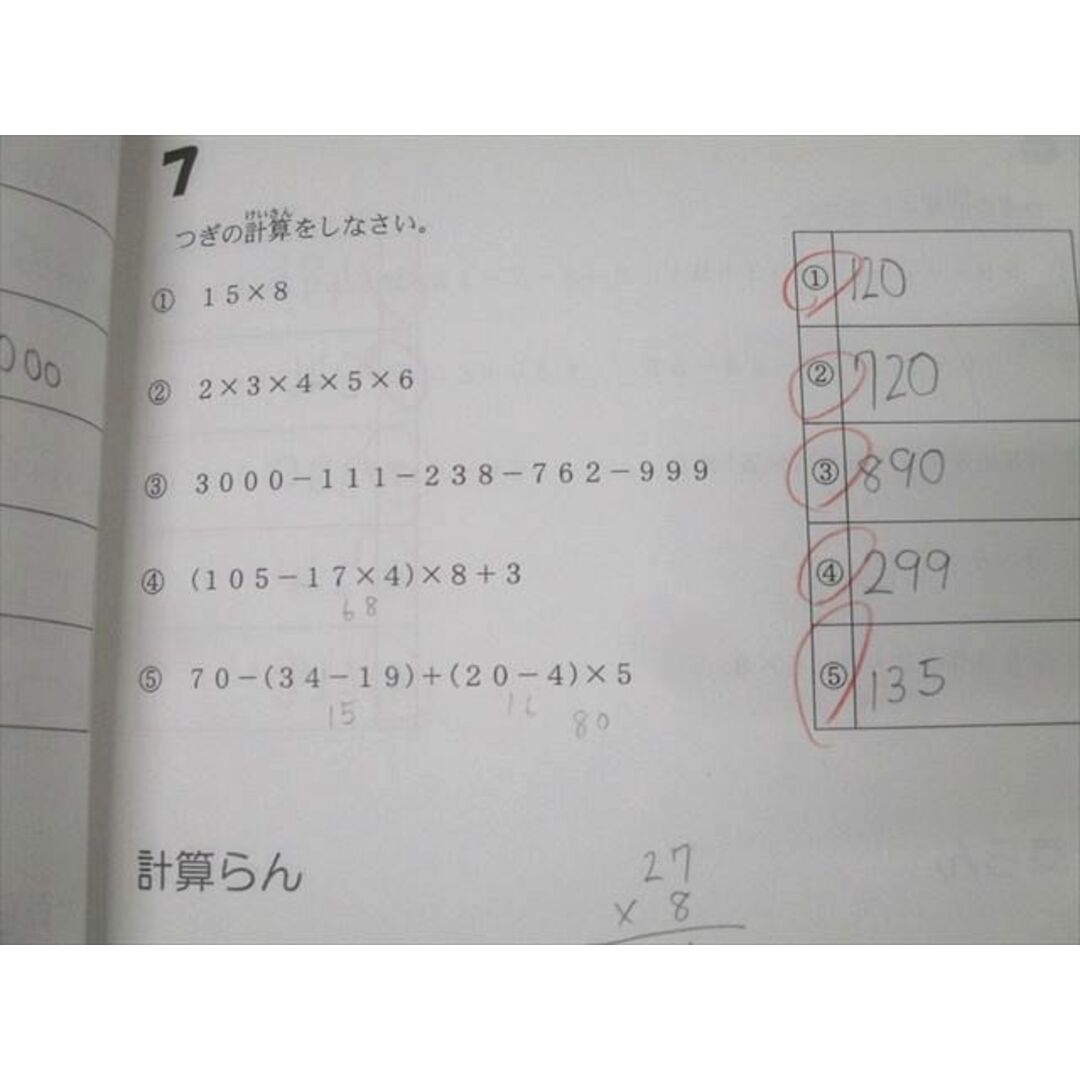 7
つぎの計算をしなさい。
けいさん
① 15×8
② 2×3×4×5×6
③ 3000－111－238－762－999
④ (105－17×4)×8＋3
68
⑤ 70－(34－19)＋(20－4)×5
15 16
80
① 120
② 720
③ 890
④ 299
⑤ 135
計算らん
27
× 8
000